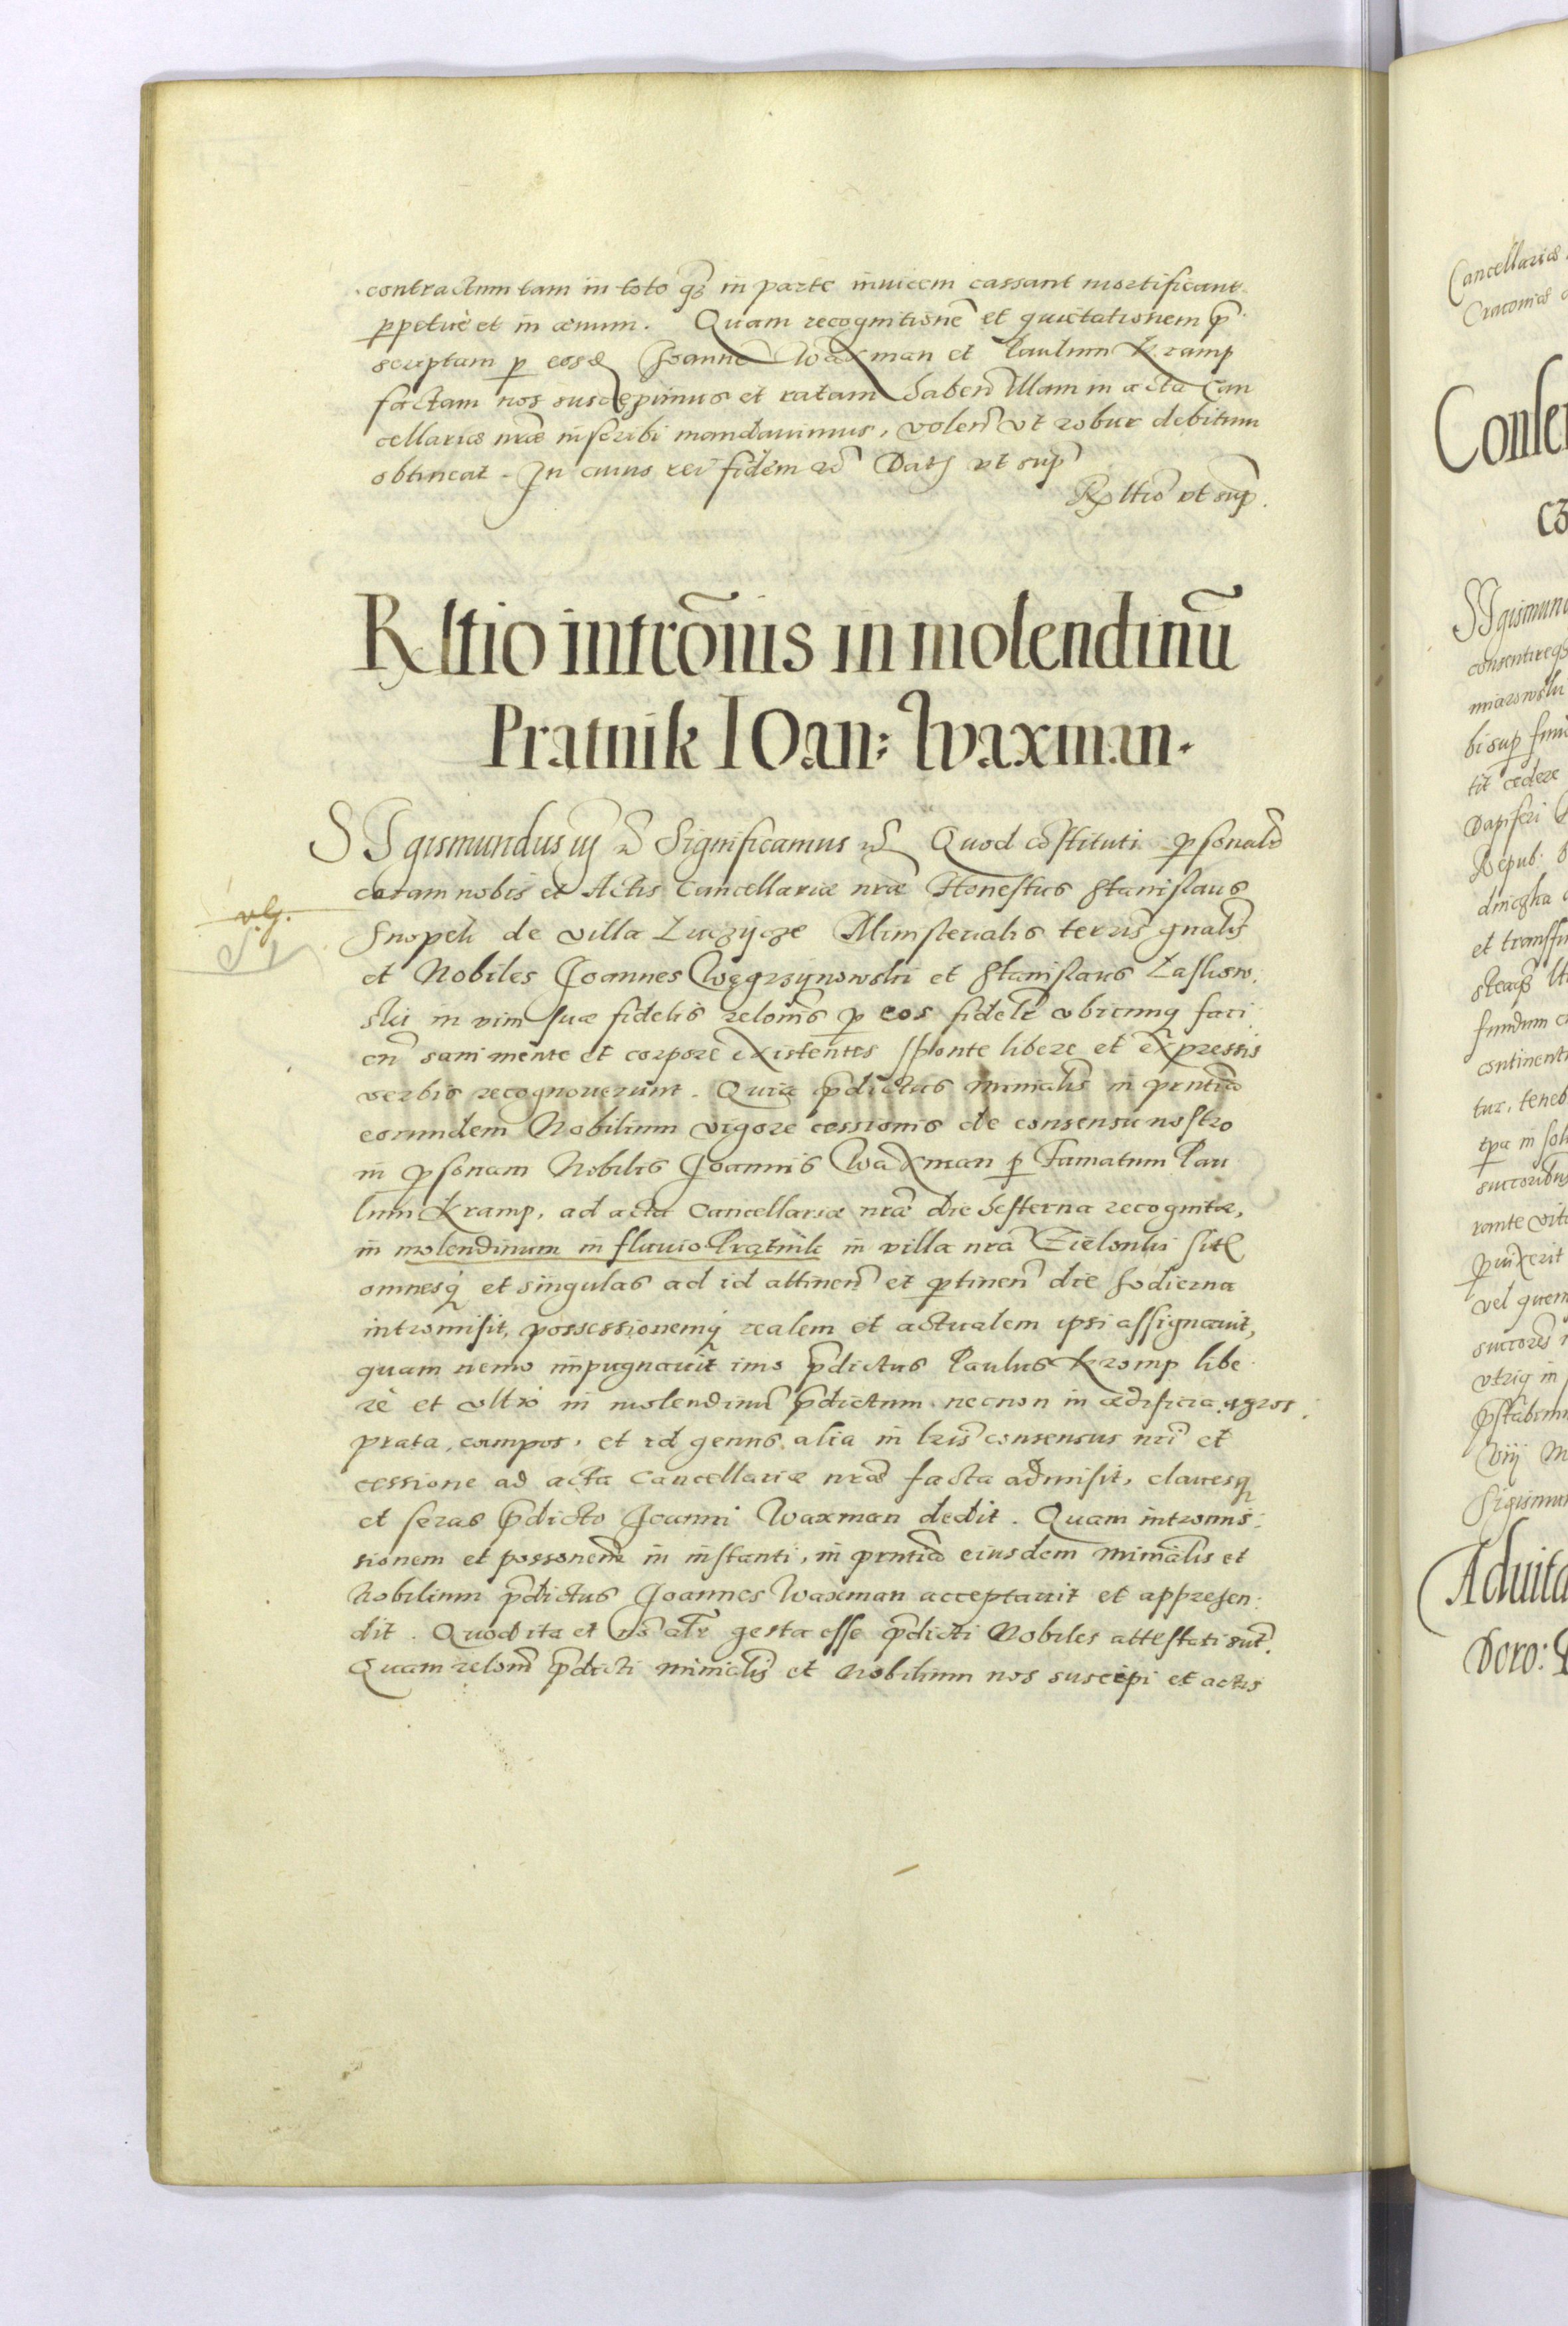 contractum tam in toto qꝫ in parte inuicem cassant mortificant
ꝑpetue et in æuum. Quam recognitionē et quietationem p̄
scriptam ꝑ eosd Joannē Waxman et Paulum Kramp
factam nos suscepimus et ratam habeñ illam in acta Can
cellariæ nr̃æ inscribi mandauimus, volen̄ vt robur debitum
obtineat. In cuius rei fidem etc̃ Datꝭ vt sup̃
Rltio vt sup̃.
Rltio intrõnis in molendinũ
Pratnik IOan: Waxman.
SIgismundus iij etc̃ Significamus etc̃ Quod cõstituti ꝑsonalr̃
coram nobis et Actis Cancellariæ nræ Honestus Stanislaus
Snopek de villa Luczycze Ministerialis terris gnalis̃
et Nobiles Joannes Węgrzynowski et Stanislaus Laskow
ski in vim suæ fidelis relonis̃ ꝑ eos fidelr̃ vbicunq faci
en̄ sani mente et corpore existentes sponte libere et expressis
verbis recognouerunt. Quia p̃dictus minialis̃ in prntia
eorundem Nobilium vigore cessionis de consensu nostro
in ꝑsonam Nobilis Joannis Waxman ꝑ Famatum Pau
lum Kramp, ad acta Cancellariæ nræ die hesterna recognitæ,
in molendinum in fluuio Prątnik in villa nr̃a Zielonki sitꝭ
omnesq̃ et singulas ad id attinen̄ et ꝑtinen̄ die hodierna
intromisit, possessionemq̃ realem et actualem ipsi assignauit,
quam nemo impugnauit imo p̃dictus Paulus Kromp libe
rè et vltrò in molendinũ p̃dictum necnon in ædificia agros,
prata, campos, et id genus alia in lr̃is consensus nr̃i et
cessione ad acta Cancellariæ nræ facta admisit, clauesq
et seras p̃dicto Joanni Waxman dedit. Quam intromis:
sionem et possonem̃ in instanti, in prntia eiusdem minialis̃ et
Nobilium p̃dictus Joannes Waxman acceptauit et appręhen:
dit. Quod ita et nõ alr̃ gesta esse p̃dicti Nobiles attestati sut̃.
Quam relonẽ p̃dicti minialis̃ et Nobilium nos suscepi et actis
Cancellariæ
Cracouiæ
SIgismun
consentireqꝫ
bi sup̃
tit cedere
Dapiferi
Repub.
et transf
fundum
continenti
tur, teneb
vel quem
vtriq in
Sigismun
Aduita
Doro: